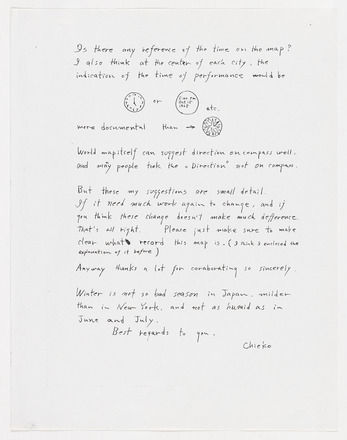 Is there any reference of the time on the map?
I also think at the center of each city, the
indication of the time of performance would be
or etc.
more documental than →
World map itself can suggest direction on compass well.
and many people took the "Direction" not on compass.
But these my suggestions are small detail.
If it need much work again to change, and if
you think these change doesn't make much defference
That's all right. Please just make sure to make
clear what record this map is. (I think I enclosed the
explanation of it before)
Anyway thanks a lot for coraborating so sincerely.
Winter is not so bad season in Japan, milder
than in New York, and not as humid as in
June and July.
Best regards to you.
Chieko